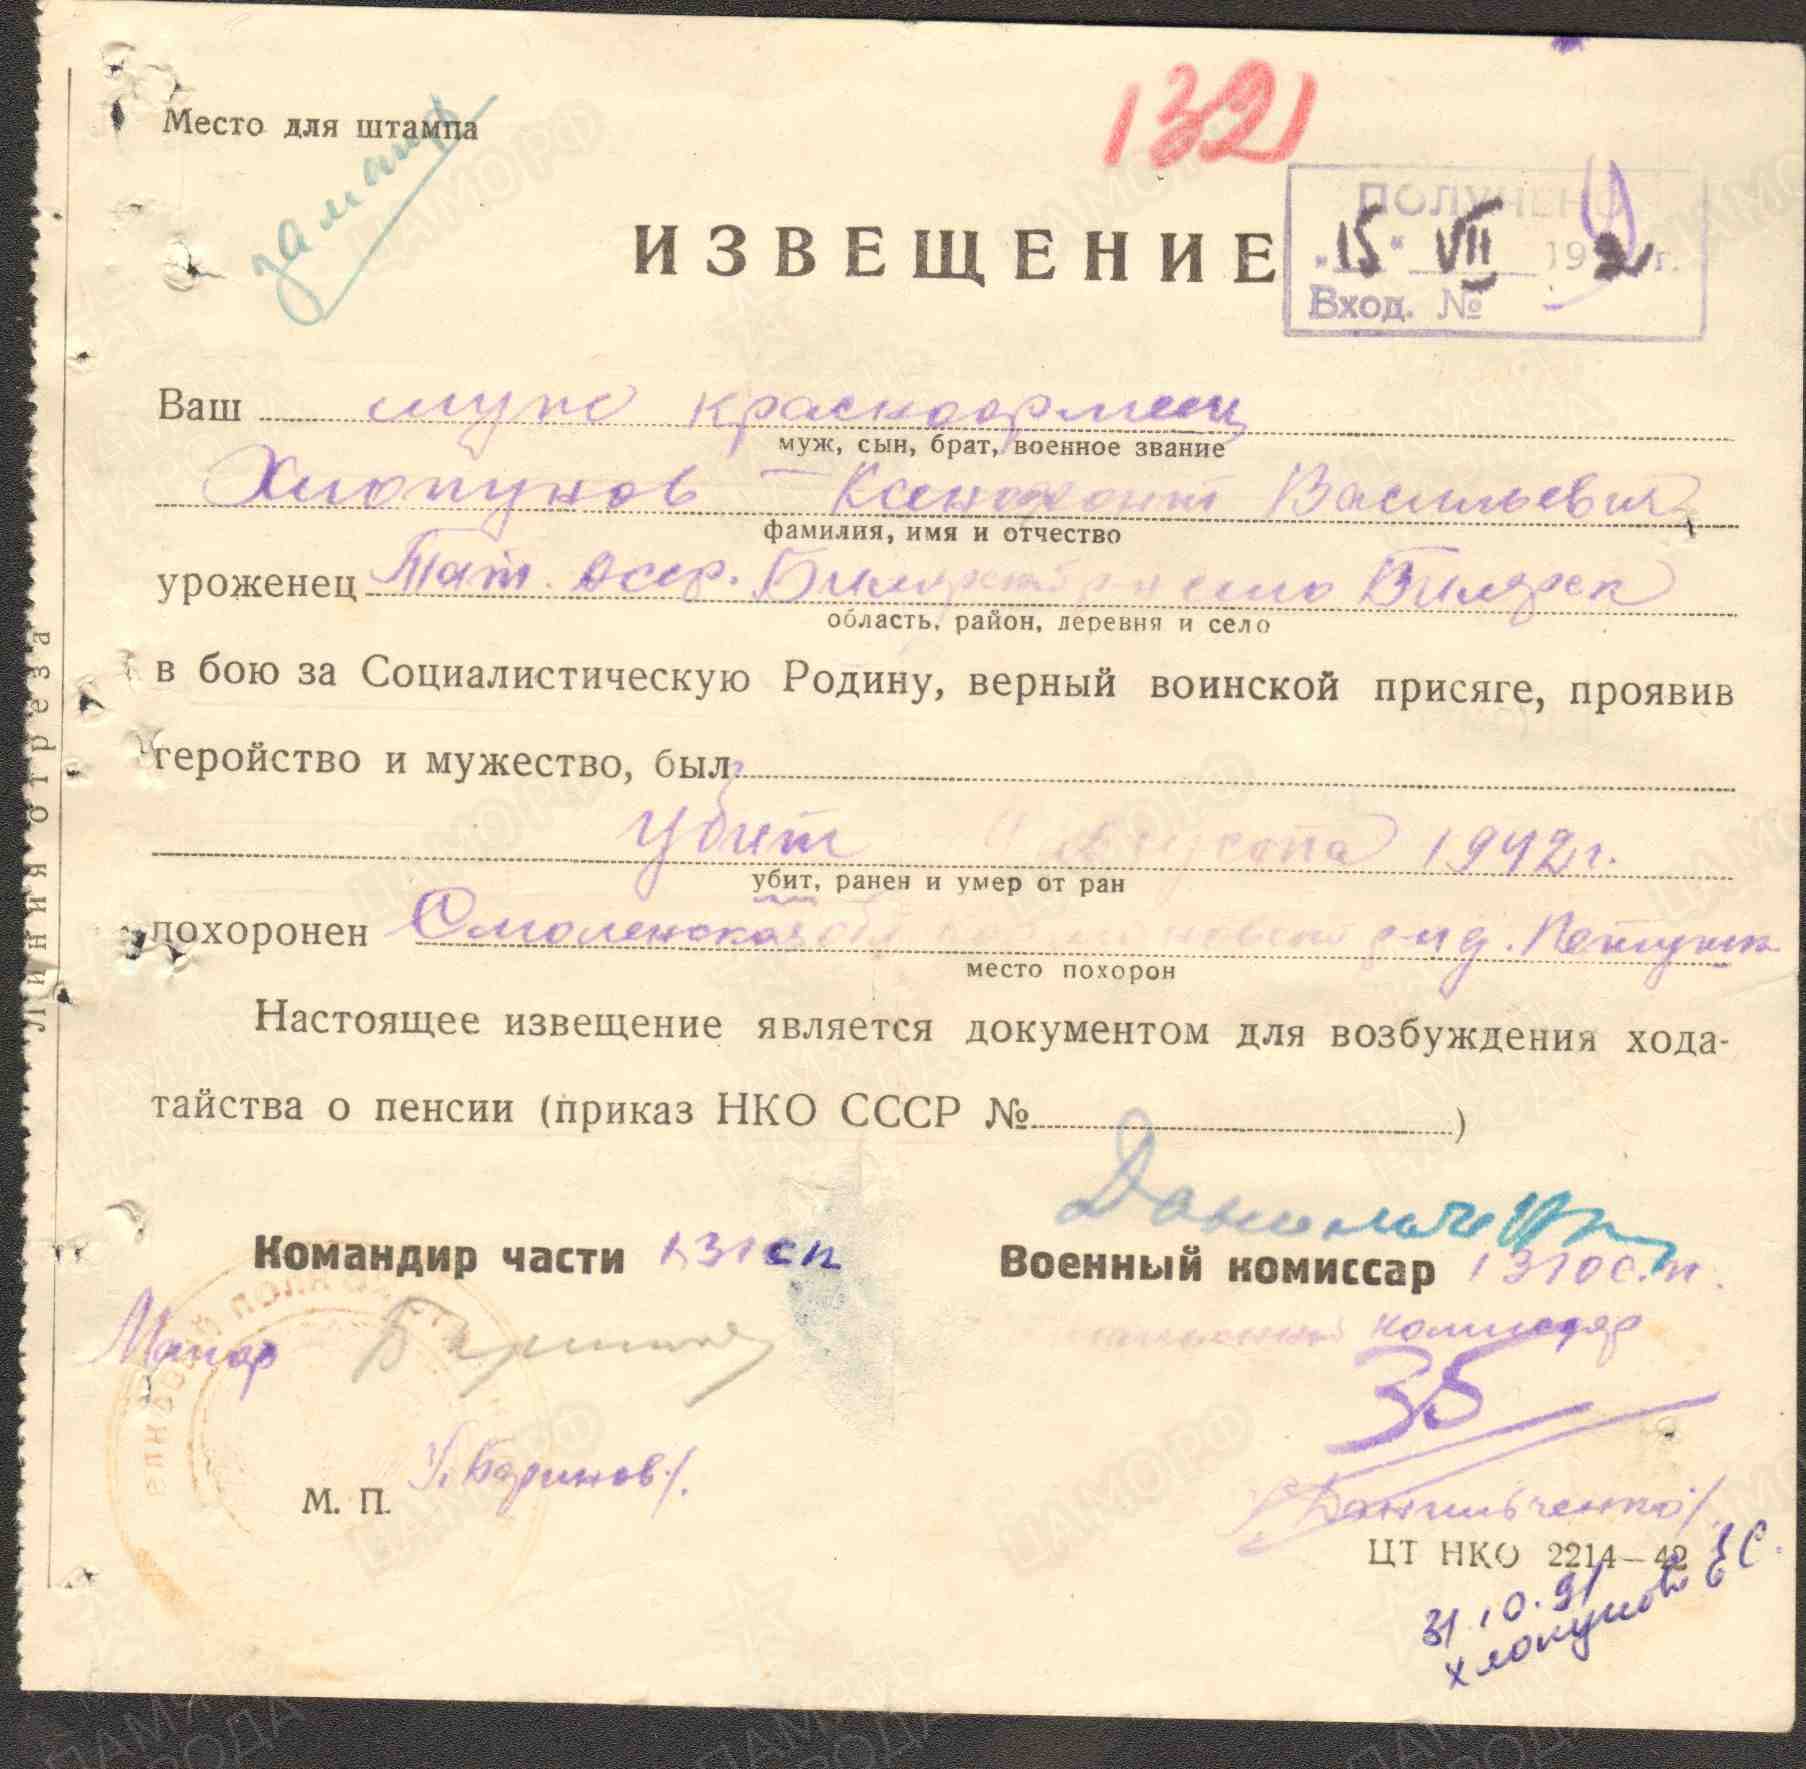 132
Место для штампа
ПОЛУЧЕНО
ИЗВЕЩЕНИЕ
"15" VII 19 2 г.
Вход. №
Ваш муж красноармеец
муж, сын, брат, военное звание
Хлопунов Ксенофонт Васильевич
фамилия, имя и отчество
уроженец Тат. АССР. Билярский р-н село Билярск
область, район, деревня и село
в бою за Социалистическую Родину, верный воинской присяге, проявив
геройство и мужество, был
убит августа 1942 г.
убит, ранен и умер от ран
похоронен Смоленская обл р-н д. Петушки
место похорон
Настоящее извещение является документом для возбуждения хода-
тайства о пенсии (приказ НКО СССР № )
Данильченко
Командир части 1310 сп
Военный комиссар 1310 с.п.
Майор
комиссар
35
/Баринов/.
М. П.
/Данильченко/
ЦТ НКО 2214—42
31.10.91
Хлопунова ЕС.
Линия отреза